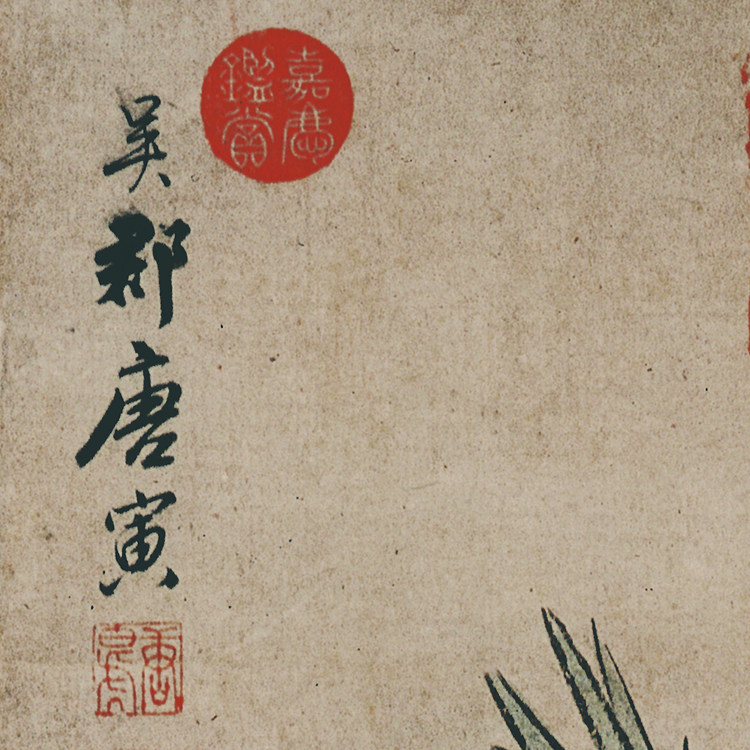 吳郡唐寅
嘉慶鑑賞
唐白虎